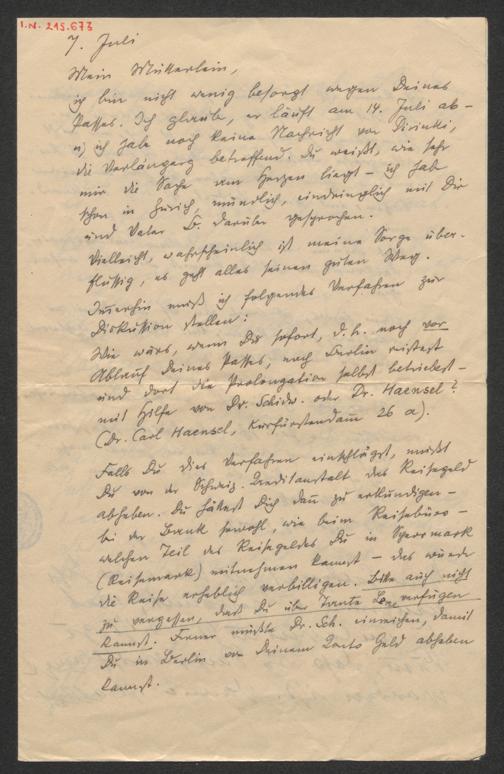 I.N. 215.673
7. Juli
Mein Mütterlein,
ich bin nicht wenig besorgt wegen Deines
Passes. Ich glaube, er läuft am 14. Juli ab –
u) ich habe noch keine Nachricht von
die Verlängerg betreffend. Du weißt, wie sehr
mir die Sache am Herzen liegt – ich hab
schon in Zürich, mündlich, eindringlich mit Dir
und Vater darüber gesprochen.
Vielleicht, wahrscheinlich ist meine Sorge über-
flüssig, es geht alles seinen guten Weg.
Immerhin muß ich folgendes Verfahren zur
Diskussion stellen:
Wie wärs, wenn Du sofort, d.h. noch vor
Ablauf Deines Passes, nach Berlin reistest
und dort die Prolongation selbst betriebest –
mit Hilfe von Dr. Schidr. oder Dr. Haensel?
(Dr. Carl Haensel, Kurfürstendamm 26 a).
Falls Du dies Verfahren einschlägst, müßt
Du von der Schweiz. Kreditanstalt das Reisegeld
abheben. Du hättest Dich dann zu erkundigen –
bei der Bank sowohl, wie beim Reisebüro –
welchen Teil des Reisegeldes Du in Sperrmark
(Reisemark) mitnehmen kannst – das würde
die Reise erheblich verbilligen. Bitte auch nicht
zu vergessen, daß Du über Tante verfügen
kannst. Ferner müßte Dr. Sch. einreichen, damit
Du in Berlin von Deinem Conto Geld abheben
kannst.